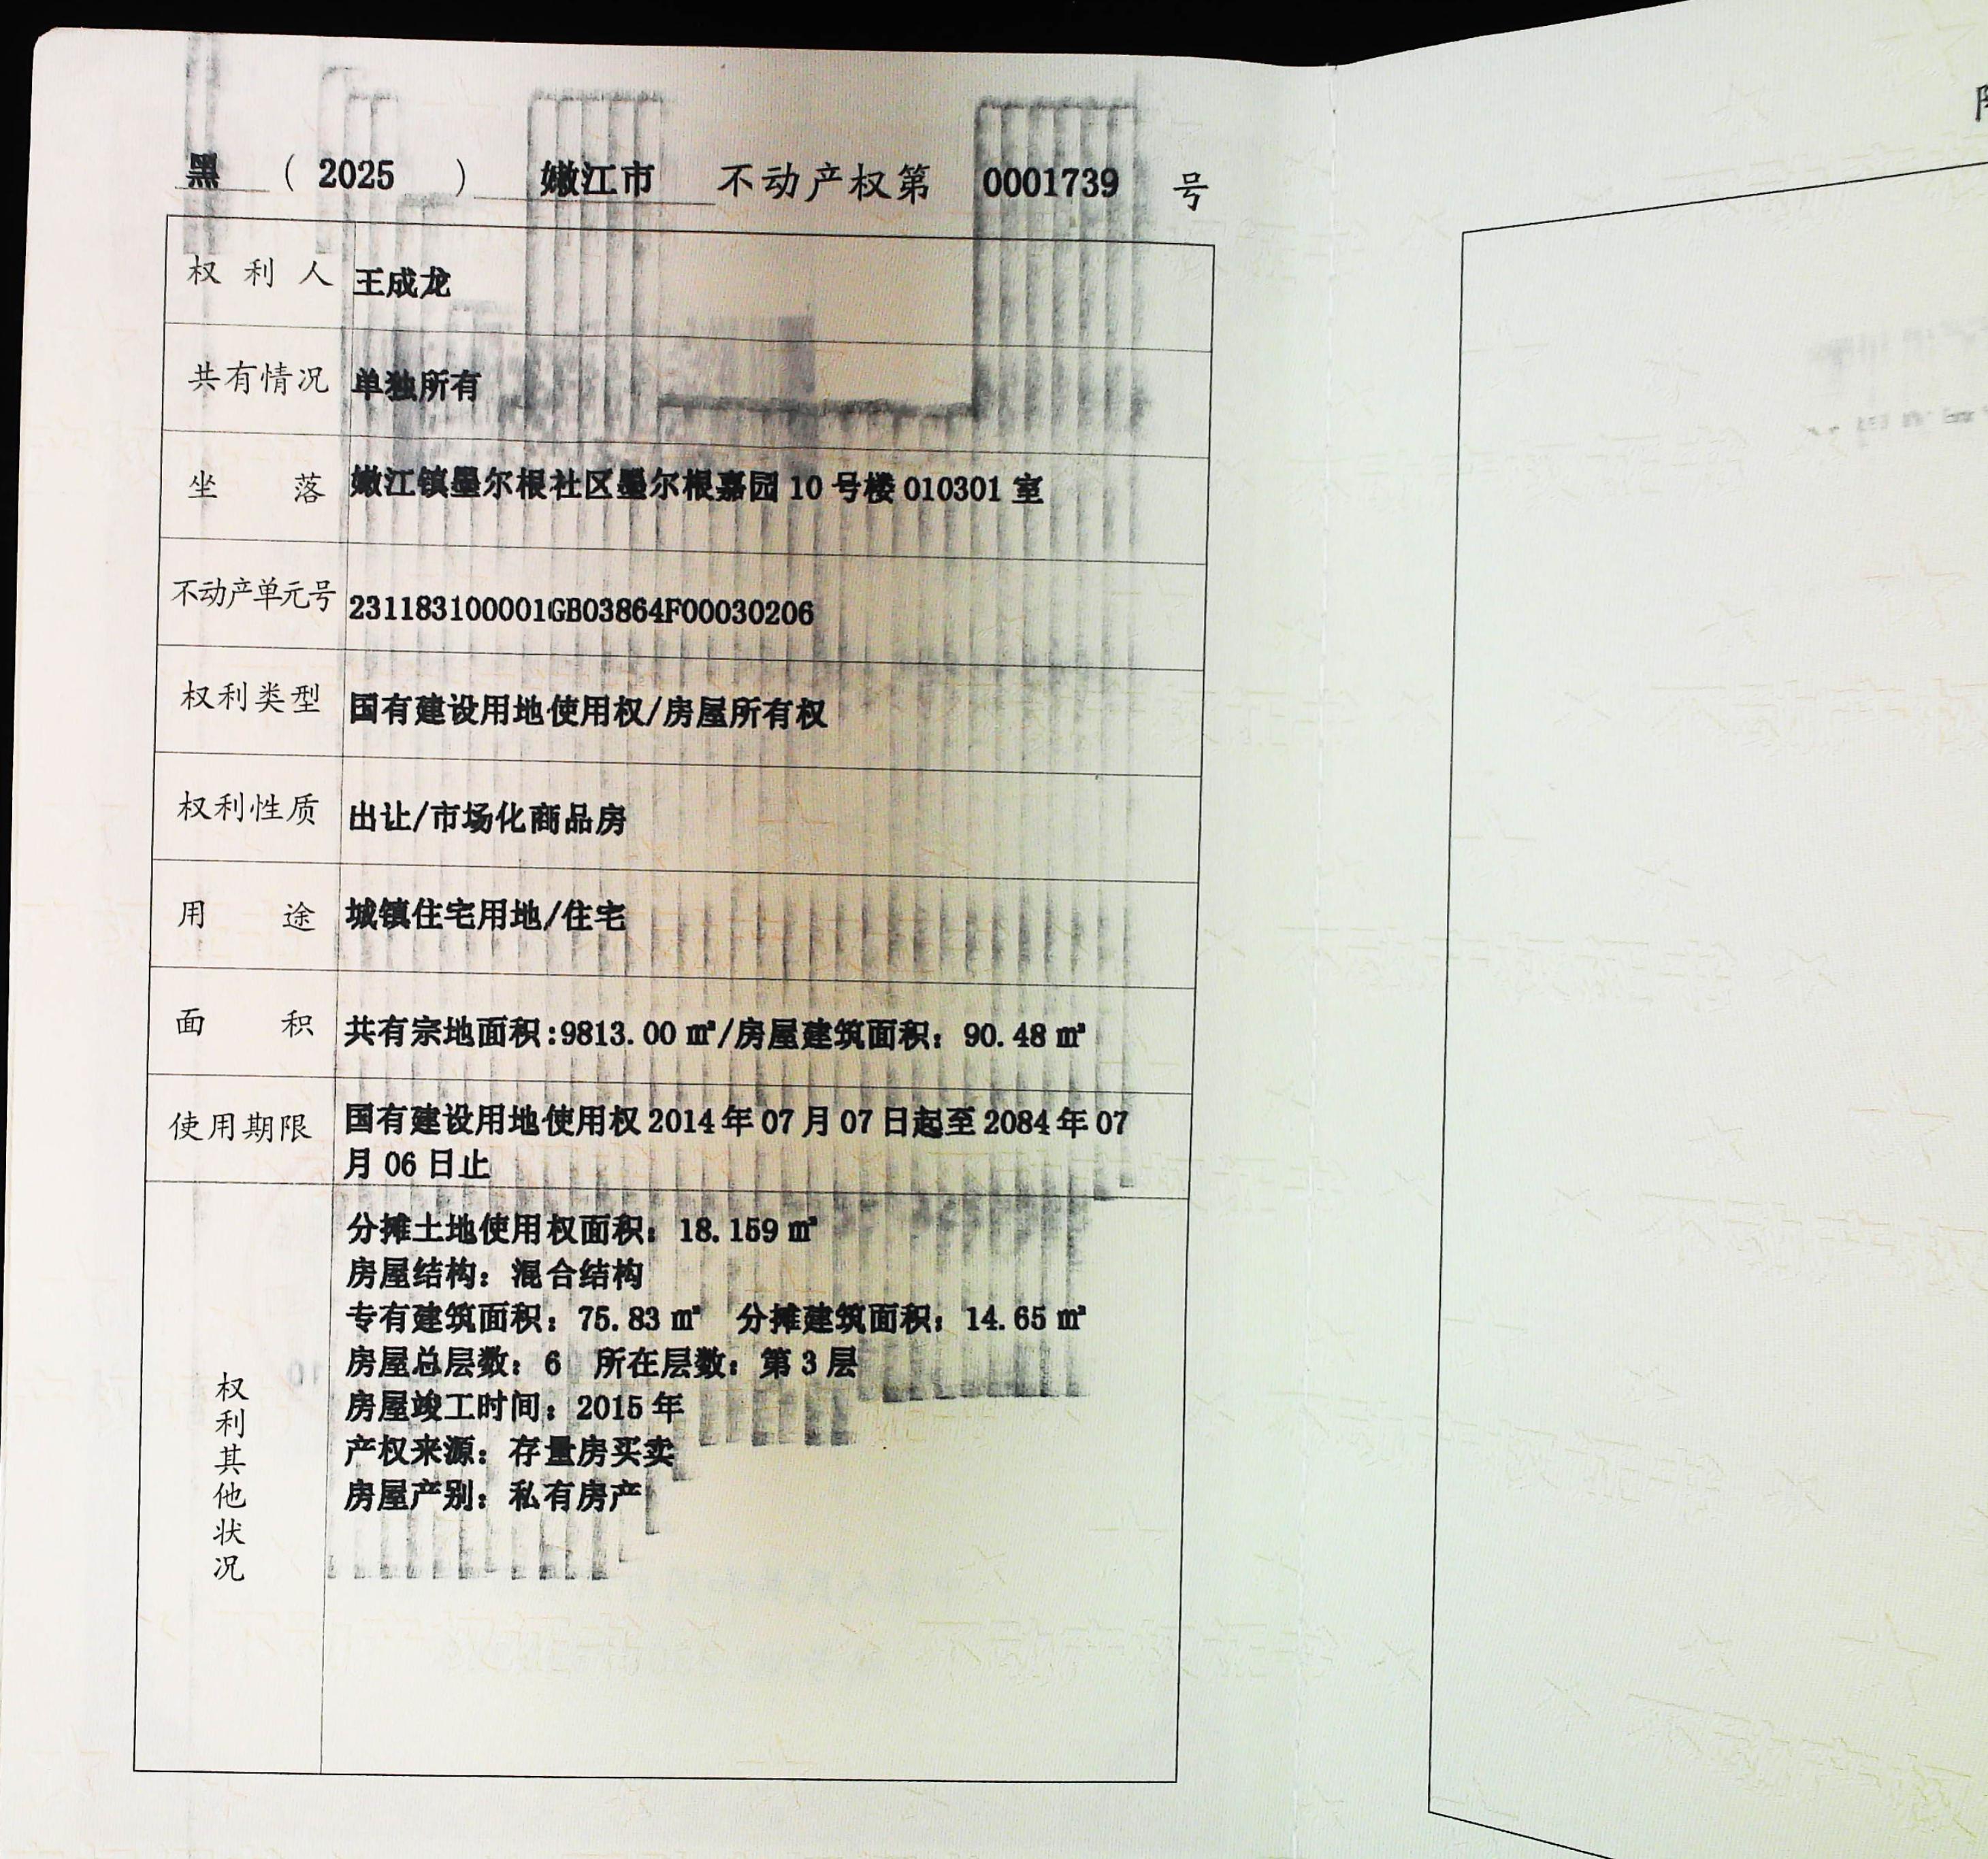 黑 (2025) 嫩江市 不动产权第 0001739 号
权利人 王成龙
共有情况 单独所有
坐落 嫩江镇墨尔根社区墨尔根嘉园 10 号楼 010301 室
不动产单元号 231183100001GB03864F00030206
权利类型 国有建设用地使用权/房屋所有权
权利性质 出让/市场化商品房
用途 城镇住宅用地/住宅
面积 共有宗地面积:9813.00 ㎡/房屋建筑面积：90.48 ㎡
使用期限 国有建设用地使用权 2014 年 07 月 07 日起至 2084 年 07
月 06 日止
权利其他状况
分摊土地使用权面积：18.159 ㎡
房屋结构：混合结构
专有建筑面积：75.83 ㎡ 分摊建筑面积：14.65 ㎡
房屋总层数：6 所在层数：第 3 层
房屋竣工时间：2015 年
产权来源：存量房买卖
房屋产别：私有房产